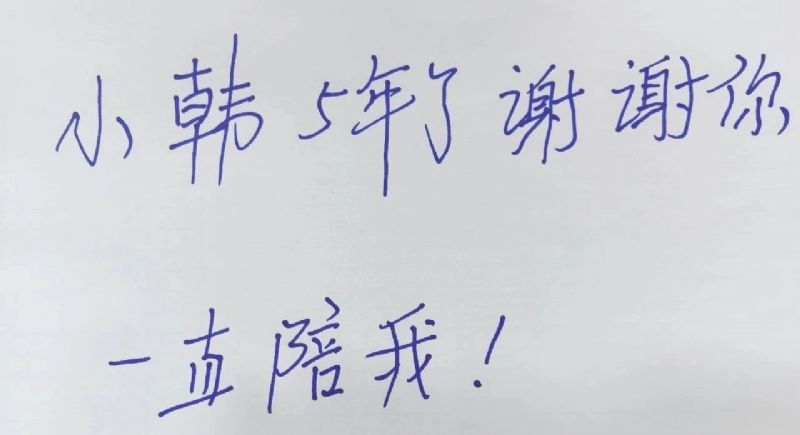 小韩5年了谢谢你
一直陪我！